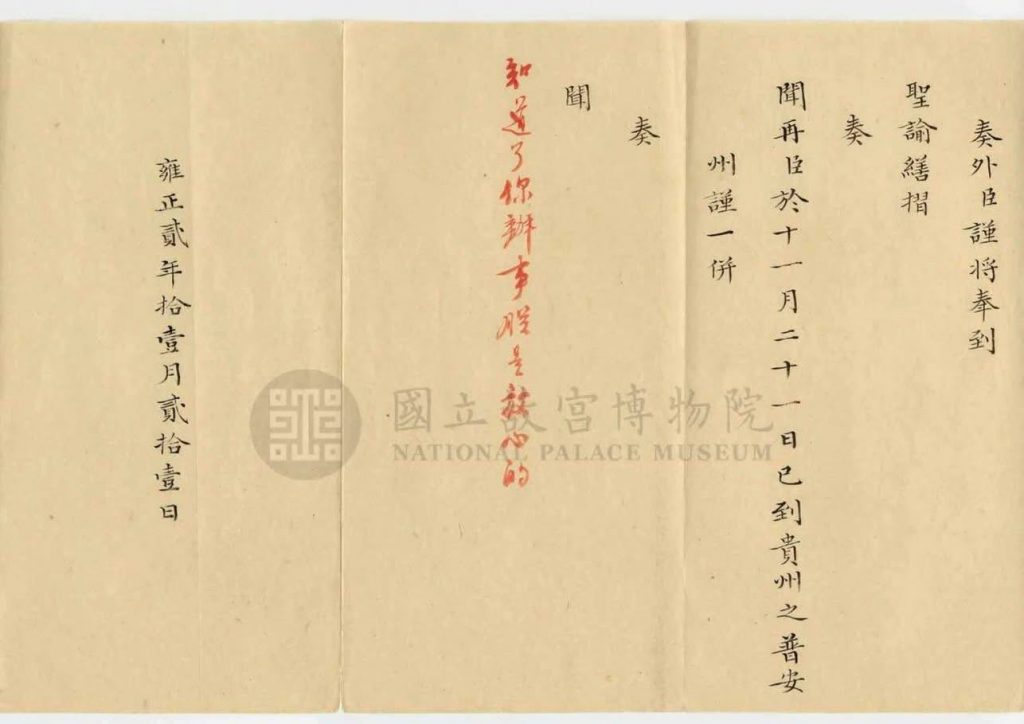 奏外臣謹将奉到
聖諭繕摺
奏
聞再臣於十一月二十一日已到貴州之普安
州謹一併
奏
聞
知道了你辦事朕是放心的
雍正貳年拾壹月貳拾壹日
國立故宮博物院
NATIONAL PALACE MUSEUM